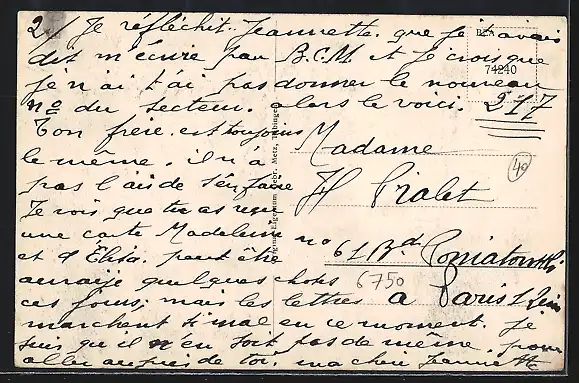 2/ Je réfléchit. Jeannette. que je t'avais
dit m'écrire par B.C.M. et je crois que
je n'ai t'ai pas donner le nouveau
no du secteur. alors le voici. 217
Ton frère. est toujours
le même. il n'a
pas l'air de s'en faire
Je vois que tu as reçu
une carte Madeleine
et d'Élisa. peut être
aurai je quelques choses
ces jours; mais les lettres
marchent si mal en ce moment. Je
suis qu'il n'en soit pas de même. pour
aller auprès de toi. ma chère Jeannette
Madame
H Pralet
no 61 Bd Poniatowski
à Paris 12
74240
40
6750
Gebr. Metz, Tübingen